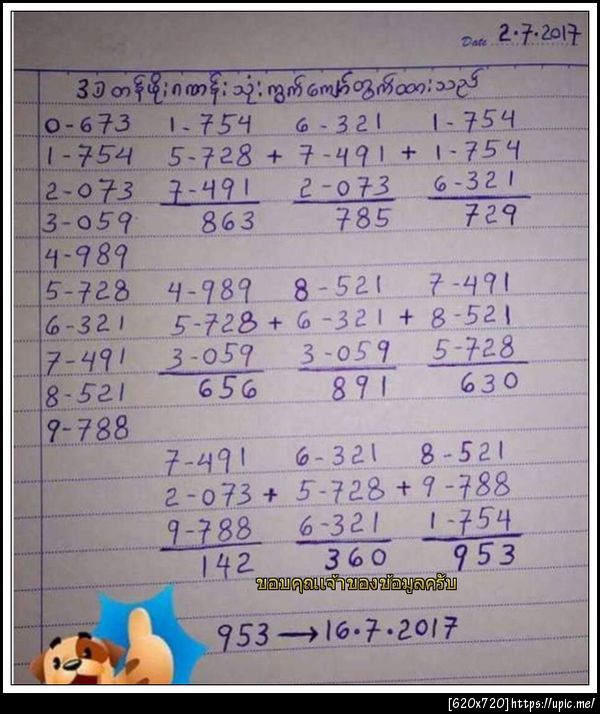 Date 2.7.2017
3D တန်ဖိုးဂဏန်း သုံးကွက်ကျော်တွက်ထားသည်
0-673 1-754 6-321 1-754
1-754 5-728 + 7-491 + 1-754
2-073 7-491 2-073 6-321
3-059 863 785 729
4-989
5-728 4-989 8-521 7-491
6-321 5-728 + 6-321 + 8-521
7-491 3-059 3-059 5-728
8-521 656 891 630
9-788
7-491 6-321 8-521
2-073 + 5-728 + 9-788
9-788 6-321 1-754
142 360 953
ขอบคุณเจ้าของข้อมูลครับ
953 → 16.7.2017
[620x720]https://upic.me/